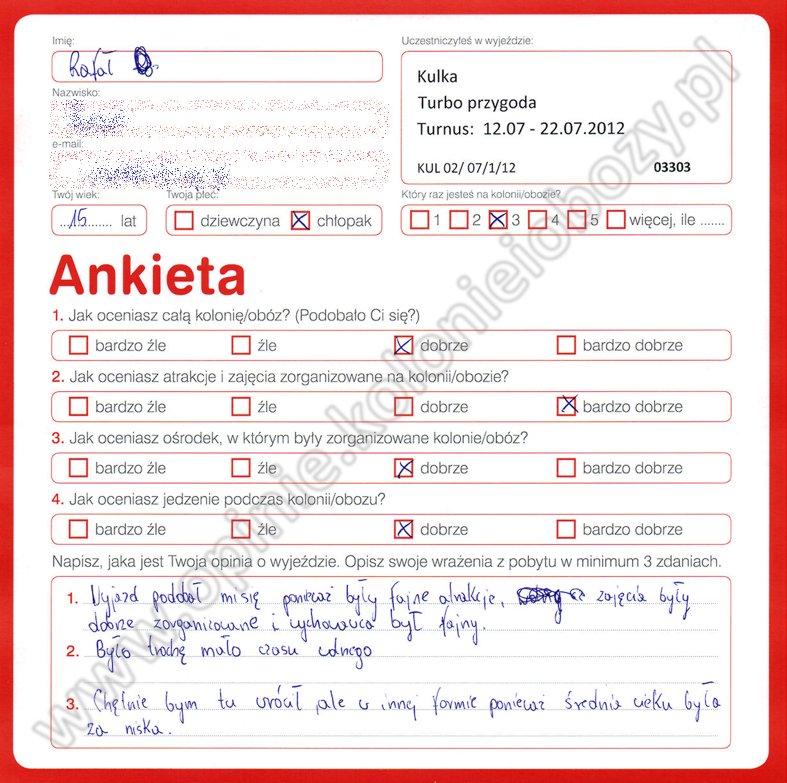 Imię:
Rafał
Uczestniczyłeś w wyjeździe:
Kulka
Turbo przygoda
Turnus: 12.07 - 22.07.2012
KUL 02/ 07/1/12 03303
Nazwisko:
e-mail:
Twój wiek:
15 lat
Twoja płeć:
dziewczyna chłopak
Który raz jesteś na kolonii/obozie?
1 2 3 4 5 więcej, ile .......
Ankieta
1. Jak oceniasz całą kolonię/obóz? (Podobało Ci się?)
bardzo źle źle dobrze bardzo dobrze
2. Jak oceniasz atrakcje i zajęcia zorganizowane na kolonii/obozie?
bardzo źle źle dobrze bardzo dobrze
3. Jak oceniasz ośrodek, w którym były zorganizowane kolonie/obóz?
bardzo źle źle dobrze bardzo dobrze
4. Jak oceniasz jedzenie podczas kolonii/obozu?
bardzo źle źle dobrze bardzo dobrze
Napisz, jaka jest Twoja opinia o wyjeździe. Opisz swoje wrażenia z pobytu w minimum 3 zdaniach.
1. Wyjazd podobał mi się ponieważ były fajne atrakcje, zajęcia były
dobrze zorganizowane i wychowawca był fajny.
2. Było trochę mało czasu wolnego
3. Chętnie bym tu wrócił ,ale w innej formie ponieważ średnia wieku była
za niska.
www.opinie.kolonieiobozy.pl